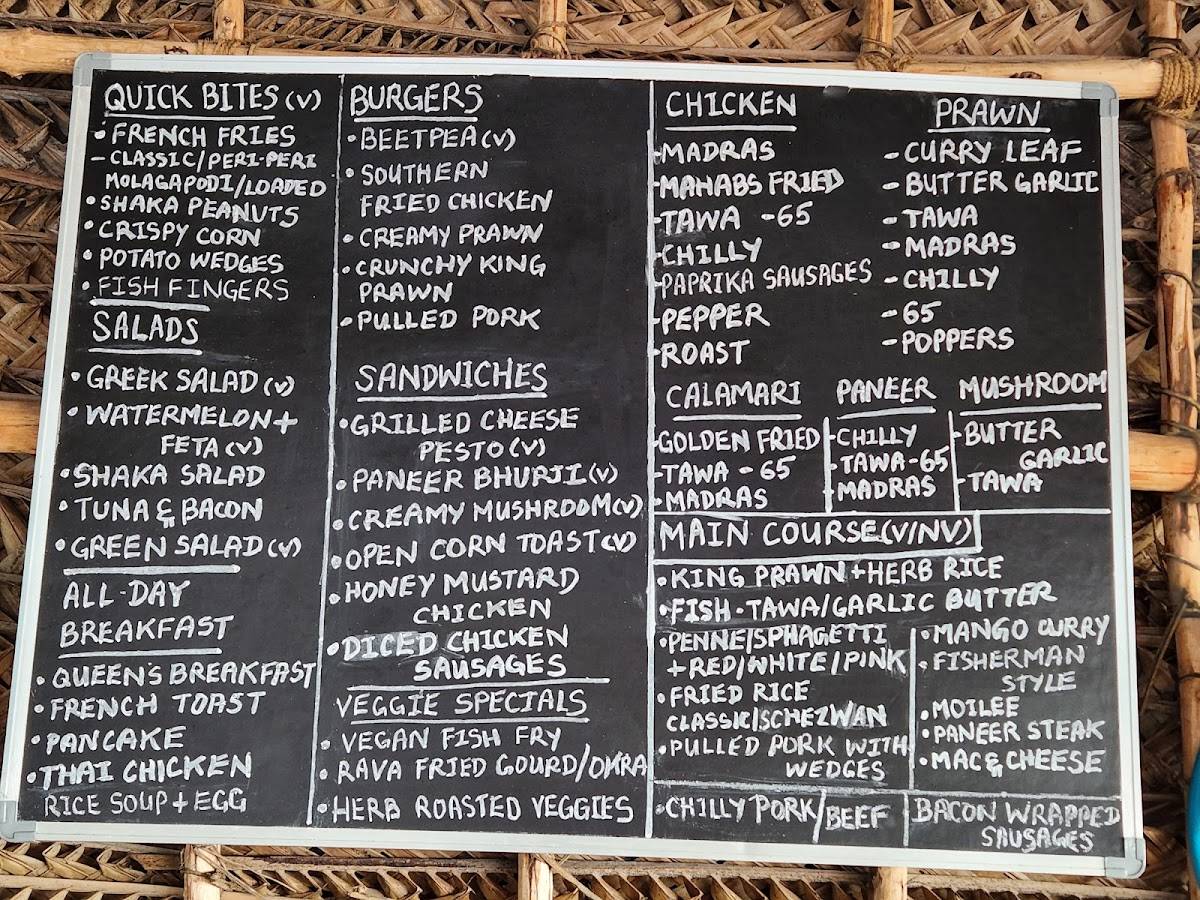 QUICK BITES (V)
• FRENCH FRIES
- CLASSIC/PERI-PERI
MOLAGAPODI/LOADED
• SHAKA PEANUTS
• CRISPY CORN
• POTATO WEDGES
• FISH FINGERS
SALADS
• GREEK SALAD (V)
• WATERMELON +
FETA (V)
• SHAKA SALAD
• TUNA & BACON
• GREEN SALAD (V)
ALL-DAY
BREAKFAST
• QUEEN'S BREAKFAST
• FRENCH TOAST
• PANCAKE
• THAI CHICKEN
RICE SOUP + EGG
BURGERS
• BEETPEA (V)
• SOUTHERN
FRIED CHICKEN
• CREAMY PRAWN
• CRUNCHY KING
PRAWN
• PULLED PORK
SANDWICHES
• GRILLED CHEESE
PESTO (V)
• PANEER BHURJI (V)
• CREAMY MUSHROOM (V)
• OPEN CORN TOAST (V)
• HONEY MUSTARD
CHICKEN
• DICED CHICKEN
SAUSAGES
VEGGIE SPECIALS
• VEGAN FISH FRY
• RAVA FRIED GOURD/OKRA
• HERB ROASTED VEGGIES
CHICKEN
- MADRAS
- MAHABS FRIED
- TAWA -65
- CHILLY
- PAPRIKA SAUSAGES
- PEPPER
- ROAST
PRAWN
- CURRY LEAF
- BUTTER GARLIC
- TAWA
- MADRAS
- CHILLY
- 65
- POPPERS
CALAMARI
- GOLDEN FRIED
- TAWA - 65
- MADRAS
PANEER
- CHILLY
- TAWA-65
- MADRAS
MUSHROOM
- BUTTER
GARLIC
- TAWA
MAIN COURSE (V/NV)
• KING PRAWN + HERB RICE
• FISH - TAWA/GARLIC BUTTER
• PENNE/SPHAGETTI
+ RED/WHITE/PINK
• FRIED RICE
CLASSIC/SCHEZWAN
• PULLED PORK WITH
WEDGES
• MANGO CURRY
• FISHERMAN
STYLE
• MOILEE
• PANEER STEAK
• MAC & CHEESE
• CHILLY PORK/BEEF
BACON WRAPPED
SAUSAGES